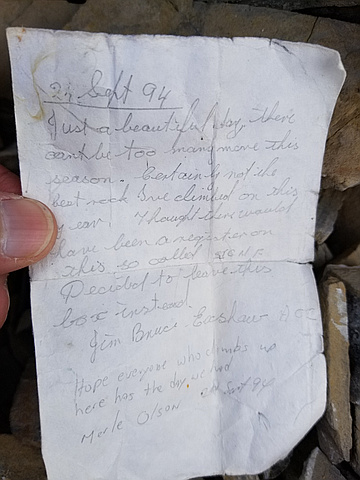 Sept 94
Just a beautiful day, there
cant be too many more this
season. Certainly not the
best rock I've climbed on this
year. Thought there would
have been a register on
this so called
Decided to leave this
box instead
Jim Bruce Earshaw
Hope everyone who climbs up
here has the day we had
Merle Olson Sept 94